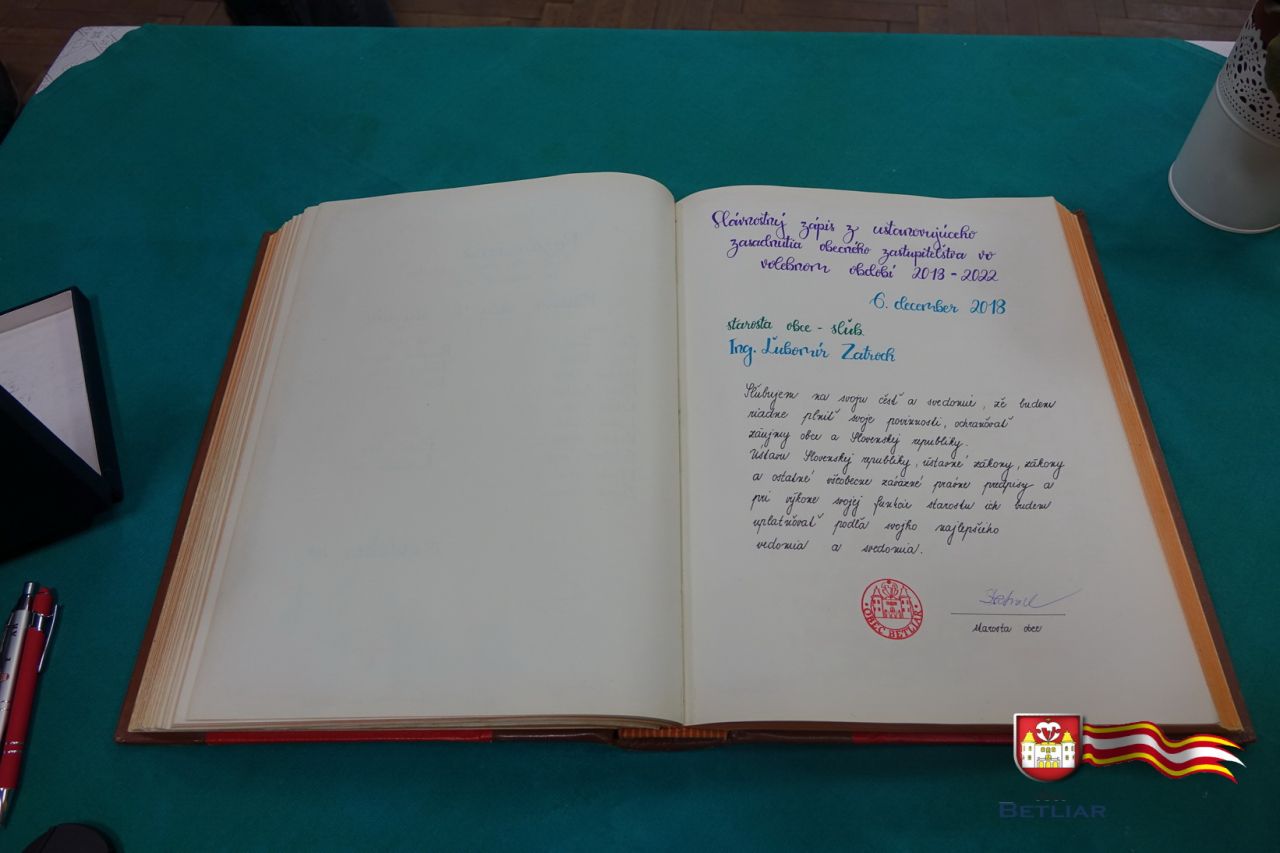 Slávnostný zápis z ustanovujúceho
zasadnutia obecného zastupiteľstva vo
volebnom období 2018 - 2022
6. december 2018
starosta obce - sľub
Ing. Ľubomír Zatroch
Sľubujem na svoju česť a svedomie, že budem
riadne plniť svoje povinnosti, ochraňovať
záujmy obce a Slovenskej republiky.
Ústavu Slovenskej republiky, ústavné zákony, zákony
a ostatné všeobecne záväzné právne predpisy a
pri výkone svojej funkcie starostu ich budem
uplatňovať podľa svojho najlepšieho
vedomia a svedomia.
OBEC BETLIAR
starosta obce
BETLIAR